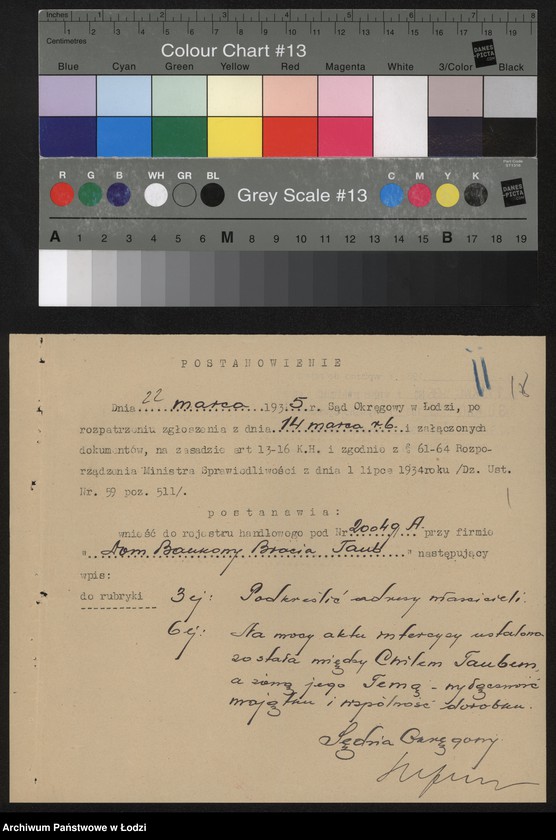 Inches 1 2 3 4 5 6 7 8
Centimetres 1 2 3 4 5 6 7 8 9 10 11 12 13 14 15 16 17 18 19
Colour Chart #13
DANES PICTA .COM
Blue Cyan Green Yellow Red Magenta White 3/Color Black
R G B WH GR BL Grey Scale #13 C M Y K
DANES PICTA .COM
A 1 2 3 4 5 6 M 8 9 10 11 12 13 14 15 B 17 18 19
POSTANOWIENIE
II
18
Dnia 22 marca 1935 r. Sąd Okręgowy w Łodzi, po
rozpatrzeniu zgłoszenia z dnia 14 marca r.b. i załączonych
dokumentów, na zasadzie art 13-16 K.H. i zgodnie z § 61-64 Rozpo-
rządzenia Ministra Sprawiedliwości z dnia 1 lipca 1934roku /Dz. Ust.
Nr. 59 poz. 511/.
postanawia:
wnieść do rejestru handlowego pod Nr 20049 A. przy firmie
"Dom Bankowy Bracia Taub" następujący
wpis:
do rubryki 3ej: Podkreślić adresy właścicieli.
6ej: Na mocy aktu intercyzy ustalona
została między Chilem Taubem,
a żoną jego Temą - wyłączność
majątku i wspólność dorobku.
Sędzia Okręgowy
Archiwum Państwowe w Łodzi